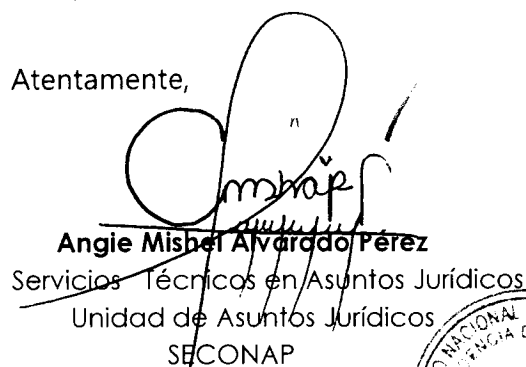 Atentamente,
Angie Mishel Alvarado Pérez
Servicios Técnicos en Asuntos Jurídicos
Unidad de Asuntos Jurídicos
SECONAP